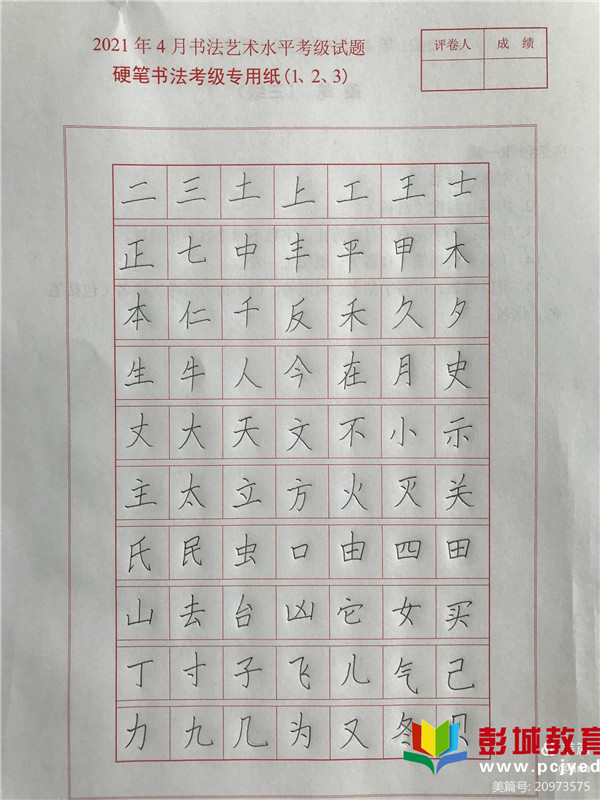 2021年4月书法艺术水平考级试题
硬笔书法考级专用纸(1、2、3)
评卷人 成绩
二三土上工王士
正七中丰平甲木
本仁千反禾久夕
生牛人今在月史
丈大天文不小示
主太立方火灭关
氏民虫口由四田
山去台凶它女买
丁寸子飞儿气己
力九几为又冬贝
彭城教育
www.pcjyed
美篇号: 20973575